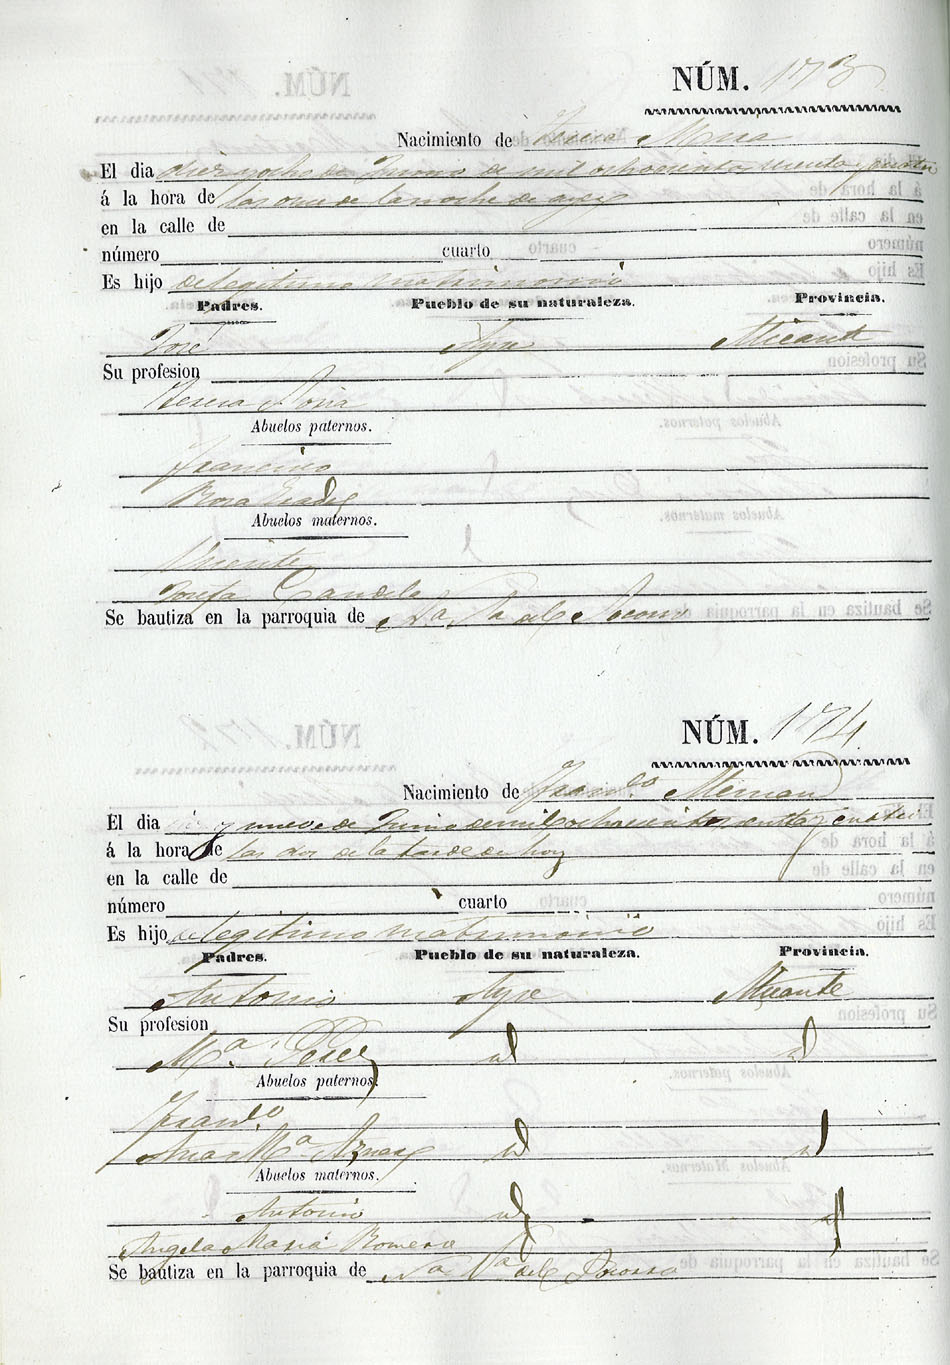 NÚM. 173
Nacimiento de Mora
El dia diez y ocho de Junio de mil ochocientos
á la hora de las once de la noche de ayer
en la calle de
número cuarto
Es hijo de legitimo matrimonio
Padres. Pueblo de su naturaleza. Provincia.
José Aspe Alicante
Su profesion
Teresa Soria
Abuelos paternos.
Francisco
Rosa
Abuelos maternos.
Vicente
Josefa Candela
Se bautiza en la parroquia de Nª Sª del Socorro
NÚM. 174
Nacimiento de Franco
El dia y nueve de Junio de mil ochocientos
á la hora de las dos de la tarde de hoy
en la calle de
número cuarto
Es hijo de legitimo matrimonio
Padres. Pueblo de su naturaleza. Provincia.
Antonio Aspe Alicante
Su profesion
Mª Perez id id
Abuelos paternos.
Franco
Ana Mª Aznar id id
Abuelos maternos.
Antonio id id
Angela Maria Romero
Se bautiza en la parroquia de Nª Sª del Socorro